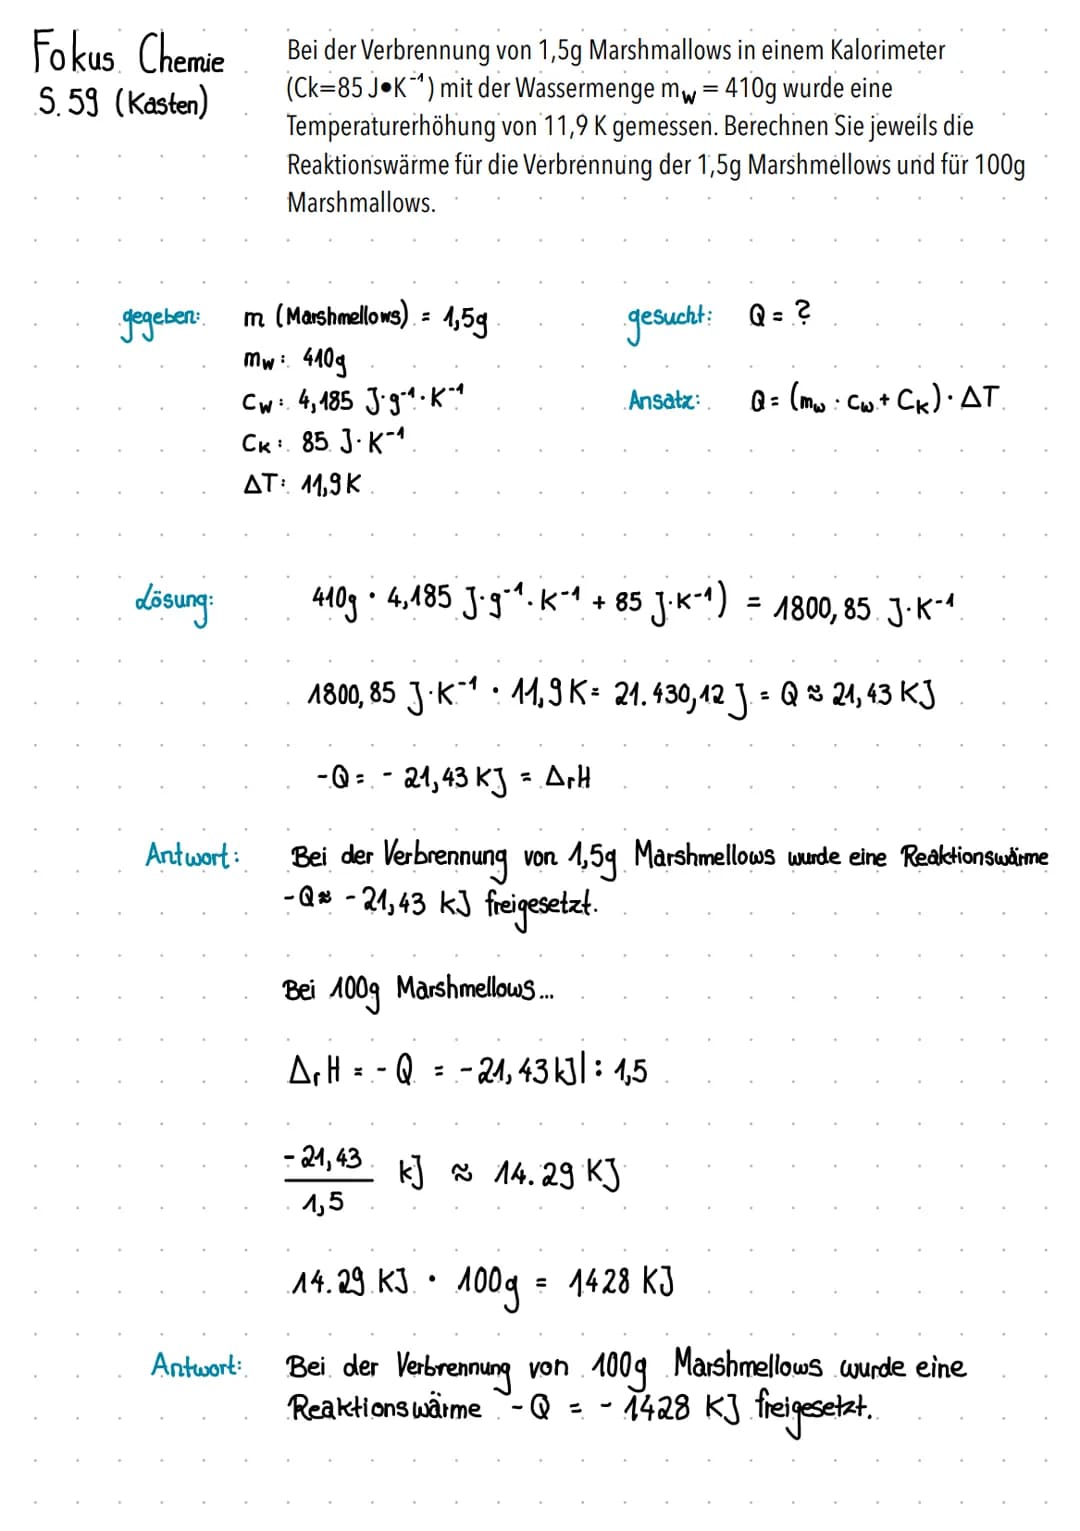 Fokus Chemie
S. 59 (Kasten)
Bei der Verbrennung von 1,5g Marshmallows in einem Kalorimeter
(Ck=85 J•K⁻¹) mit der Wassermenge mw = 410g wurde eine
Temperaturerhöhung von 11,9 K gemessen. Berechnen Sie jeweils die
Reaktionswärme für die Verbrennung der 1,5g Marshmellows und für 100g
Marshmallows.
gegeben: m (Marshmellows) = 1,5g
mw: 410g
Cw: 4,185 J·g⁻¹·K⁻¹
CK: 85 J·K⁻¹
ΔT: 11,9K
gesucht: Q = ?
Ansatz: Q = (mw · Cw + CK) · ΔT
Lösung: 410g · 4,185 J·g⁻¹·K⁻¹ + 85 J·K⁻¹) = 1800,85 J·K⁻¹
1800,85 J·K⁻¹ · 11,9K = 21.430,12 J = Q ≈ 21,43 KJ
-Q = - 21,43 KJ = ΔrH
Antwort: Bei der Verbrennung von 1,5g Marshmellows wurde eine Reaktionswärme
-Q ≈ -21,43 kJ freigesetzt.
Bei 100g Marshmellows...
ΔrH = -Q = -21,43 kJ |: 1,5
-21,43
kJ ≈ 14.29 KJ
1,5
14.29 KJ · 100g = 1428 KJ
Antwort: Bei der Verbrennung von 100g Marshmellows wurde eine
Reaktionswärme -Q = - 1428 KJ freigesetzt.